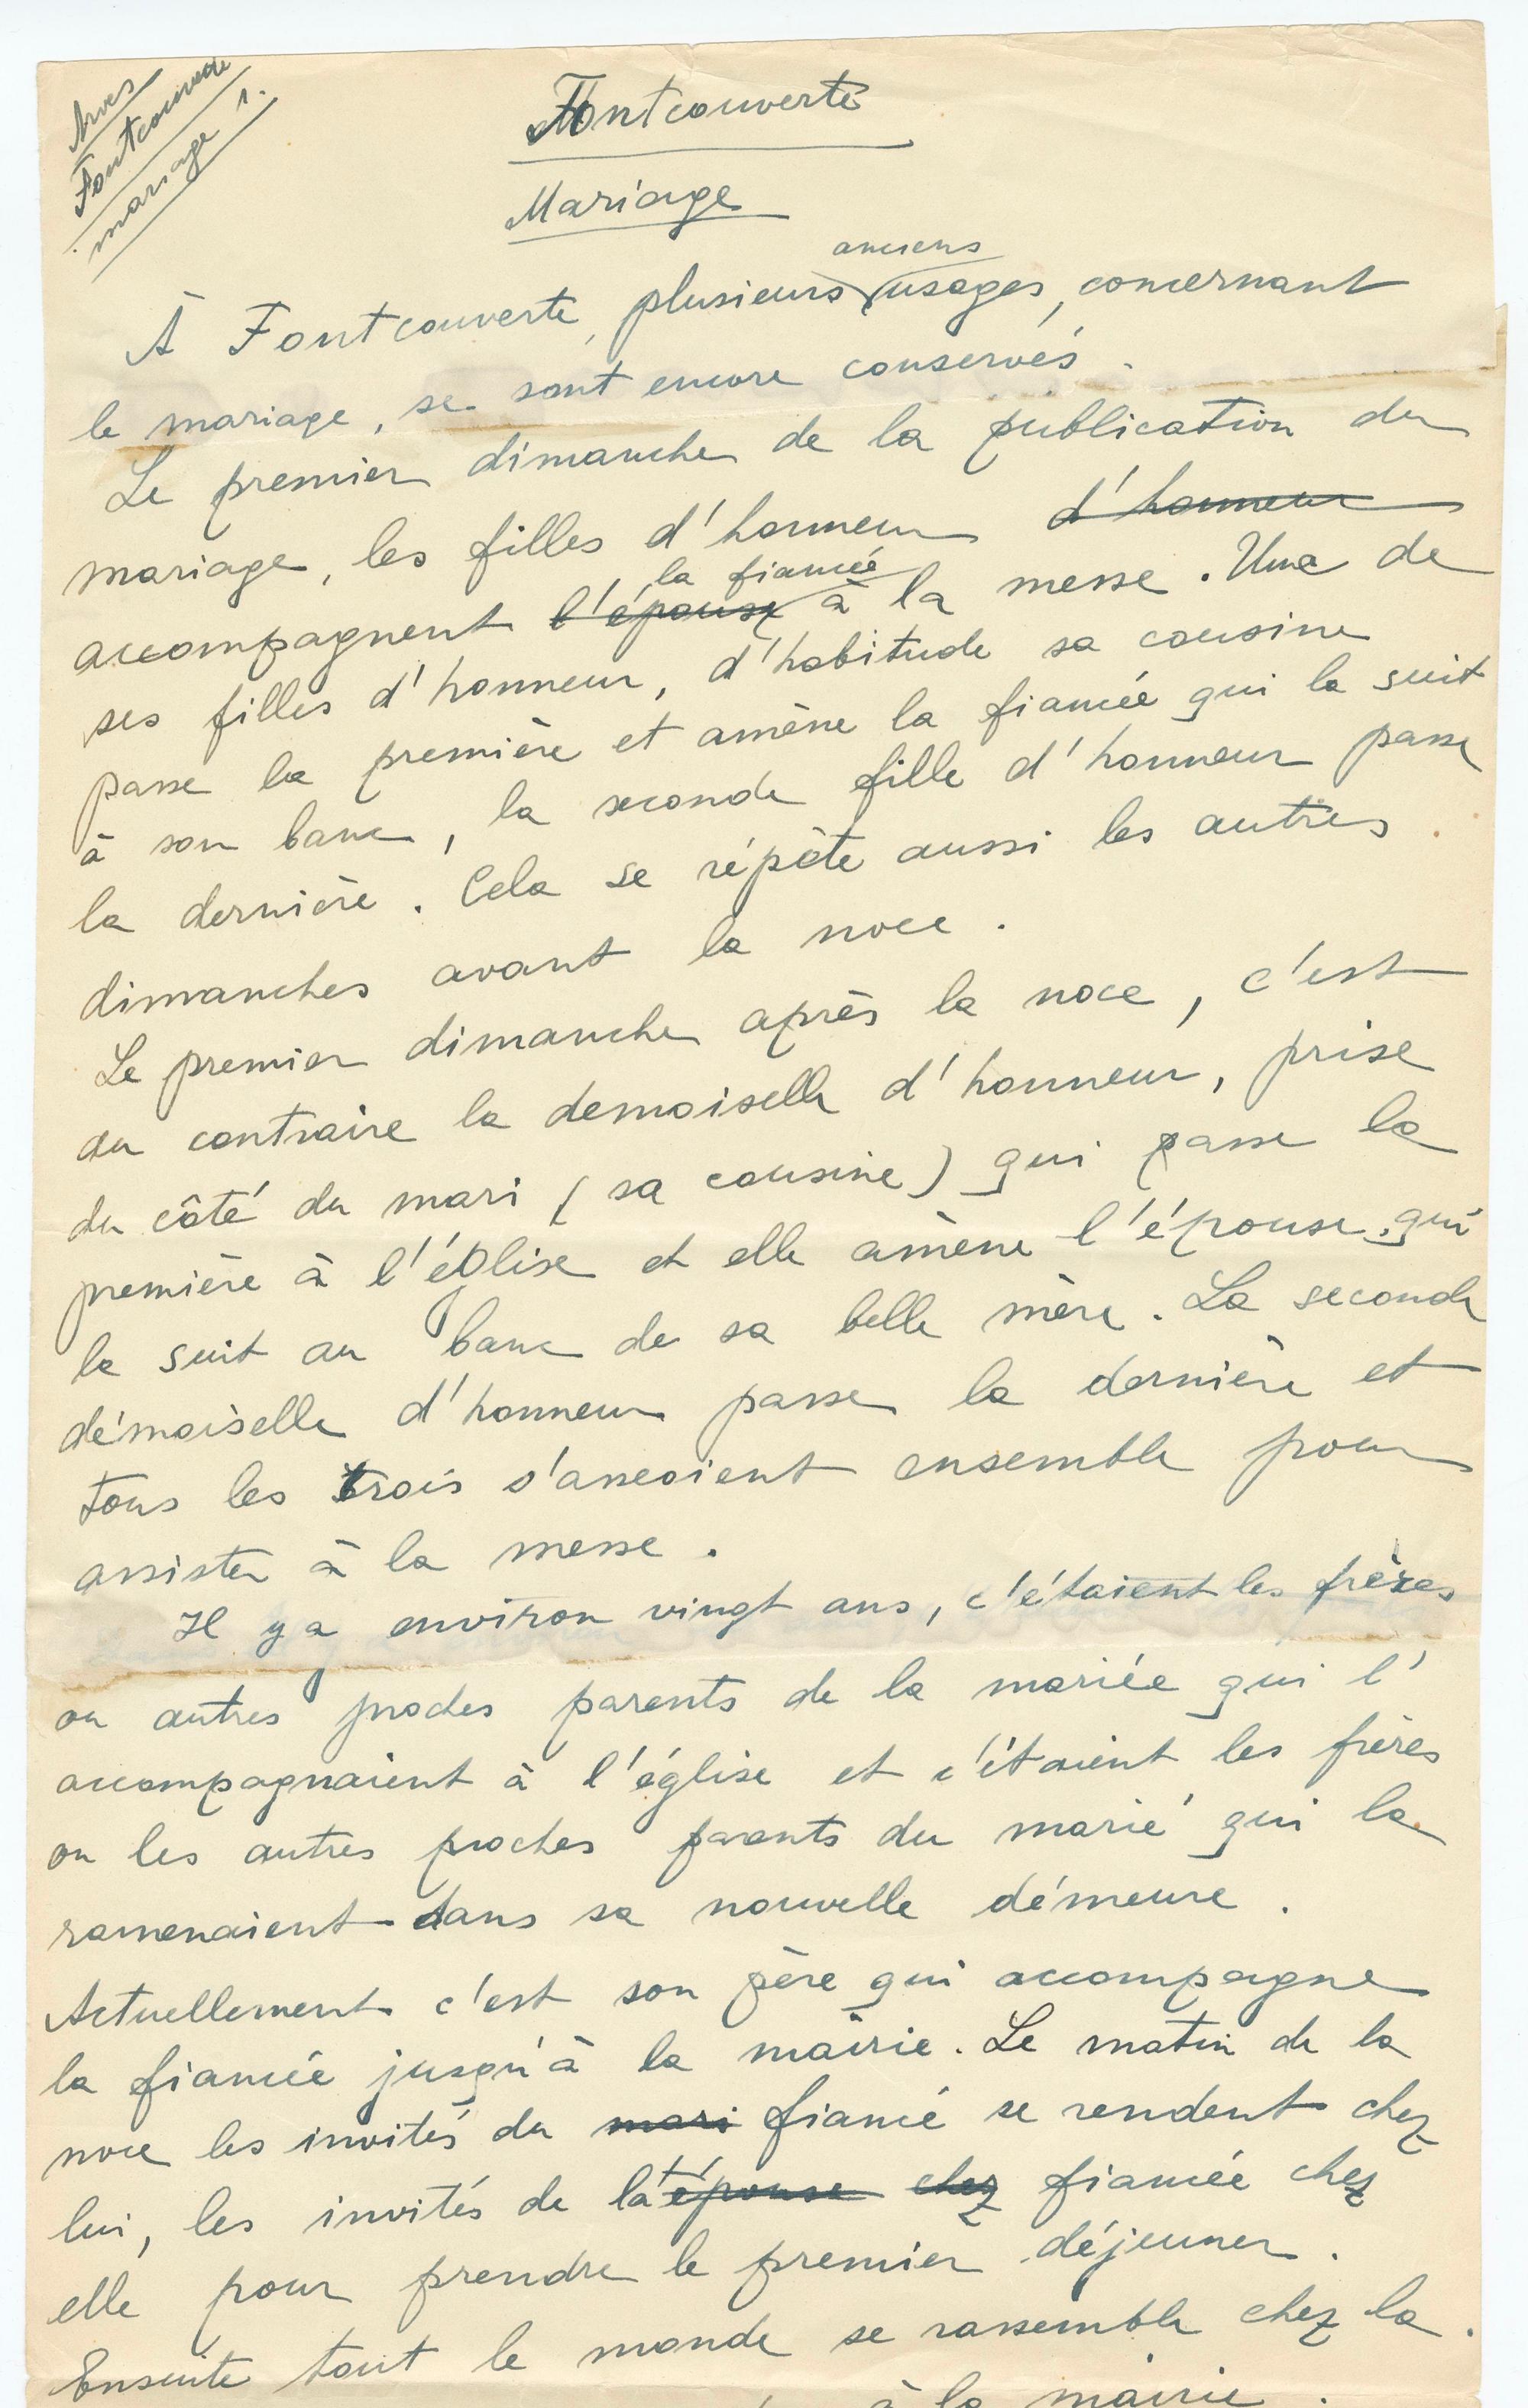 Arves
Fontcouverte
mariage 1.
Fontcouverte
Mariage
anciens
À Fontcouverte, plusieurs usages, concernant
le mariage, se sont encore conservés.
Le premier dimanche de la publication du
mariage, les filles d'honneur d'honneur
la fiancée
accompagnent l'épouse à la messe. Une de
ses filles d'honneur, d'habitude sa cousine
passe la première et amène la fiancée qui la suit
à son banc, la seconde fille d'honneur passe
la dernière. Cela se répète aussi les autres
dimanches avant la noce.
Le premier dimanche après la noce, c'est
au contraire la demoiselle d'honneur, prise
du côté du mari (sa cousine) qui passe la
première à l'église et elle amène l'épouse qui
la suit au banc de sa belle mère. La seconde
démoiselle d'honneur passe la dernière et
tous les trois s'asseoient ensemble pour
assister à la messe.
Il y a environ vingt ans, c'étaient les frères
ou autres proches parents de la mariée qui l'
accompagnaient à l'église et c'étaient les frères
ou les autres proches parents du marié qui la
ramenaient dans sa nouvelle démeure.
Actuellement c'est son père qui accompagne
la fiancée jusqu'à la mairie. Le matin de la
noce les invités du mari fiancé se rendent chez
lui, les invités de la épouse chez fiancée chez
elle pour prendre le premier déjeuner.
Ensuite tout le monde se rassemble chez la
à la mairie.